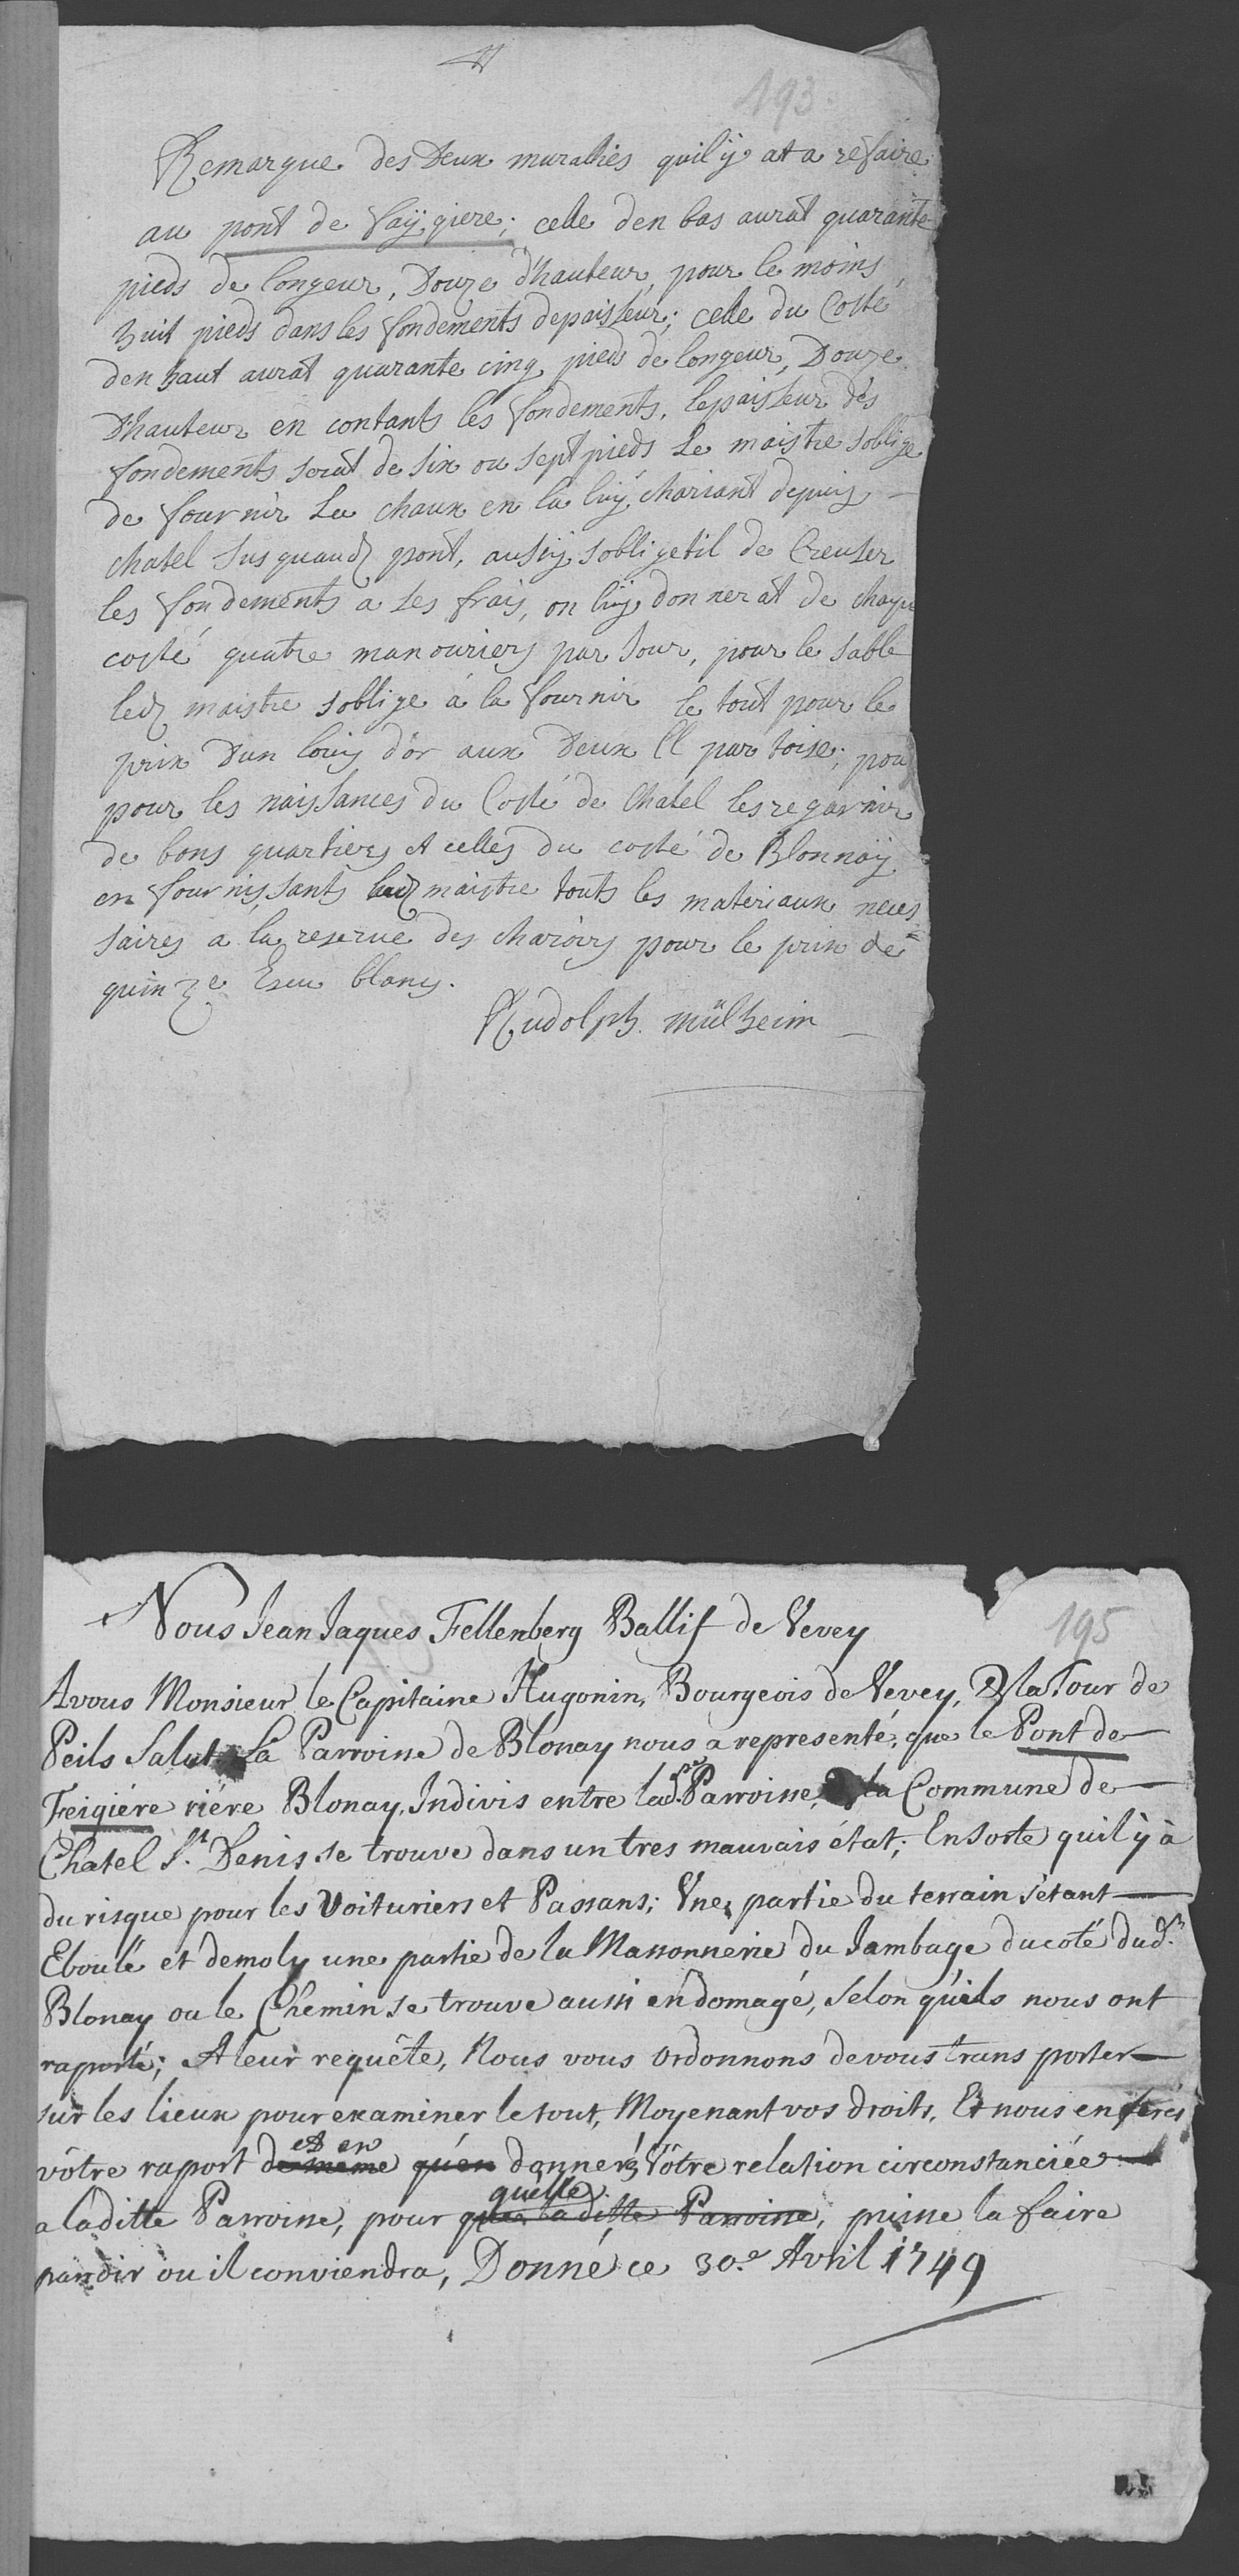 193
Remarque des Deux murallies quil ÿ at a refaire
au pont de faÿgiere; celle den bas aurat quarante
pieds de longeur, Douze d'hauteur pour le moins
huit pieds dans les fondements depaisseur; celle du Costé
den haut aurat quarante cinq pieds de longeur, Douze
D'hauteur en contants les fondements, lepaisseur des
fondements serat de six ou sept pieds Le maistre soblige
de fournir La chaux en la luÿ chariant depuis
chatel Jusquaud pont, aussÿ sobligetil de Creuser
les fondements a ses frais, on luÿ donnerat de chaque
costé quatre manouriers par Jour, pour le sable
led maistre soblige á la fournir le tout pour le
prix D'un louis d'or aux Deux LL par toise; pou
pour les naissances du Costé de Chatel les regarnir
de bons quartiers et celles du costé de Blonnaÿ
en fournissants led maistre touts les materiaux neces
saires a la reserve des charòirs pour le prix de
quinze Escu blancs.
Rudolph mülheim
195
Nous Jean Jaques Fellenberg Ballif de Vevey
A vous Monsieur le Capitaine Hugonin, Bourgeois de Vevey, & la Tour de
Peils Salut La Parroisse de Blonay nous a representé, que le Pont de
Feigiére riére Blonay, Indivis entre lad.e Parroisse, & la Commune de
Chatel S.t Denis se trouve dans un tres mauvais état; Ensorte quil ÿ à
du risque pour les Voituriers et Passans; Une partie du terrain s'étant
Eboulé et demoly une partie de la Massonnerie du Jambage du coté dud.t
Blonay ou le Chemin se trouve aussi endomagé, selon qu'ils nous ont
raporté; A leur requête, Nous vous ordonnons de vous transporter
sur les lieux pour examiner le tout, Moyenant vos droits, Et nous en ferés
vôtre raport de meme qu'en et en donnerés Vôtre relation circonstanciée
a laditte Parroisse, pour que laditte Parroisse quelle, puisse la faire
parvoir ou il conviendra, Donné ce 30.e Avril 1749